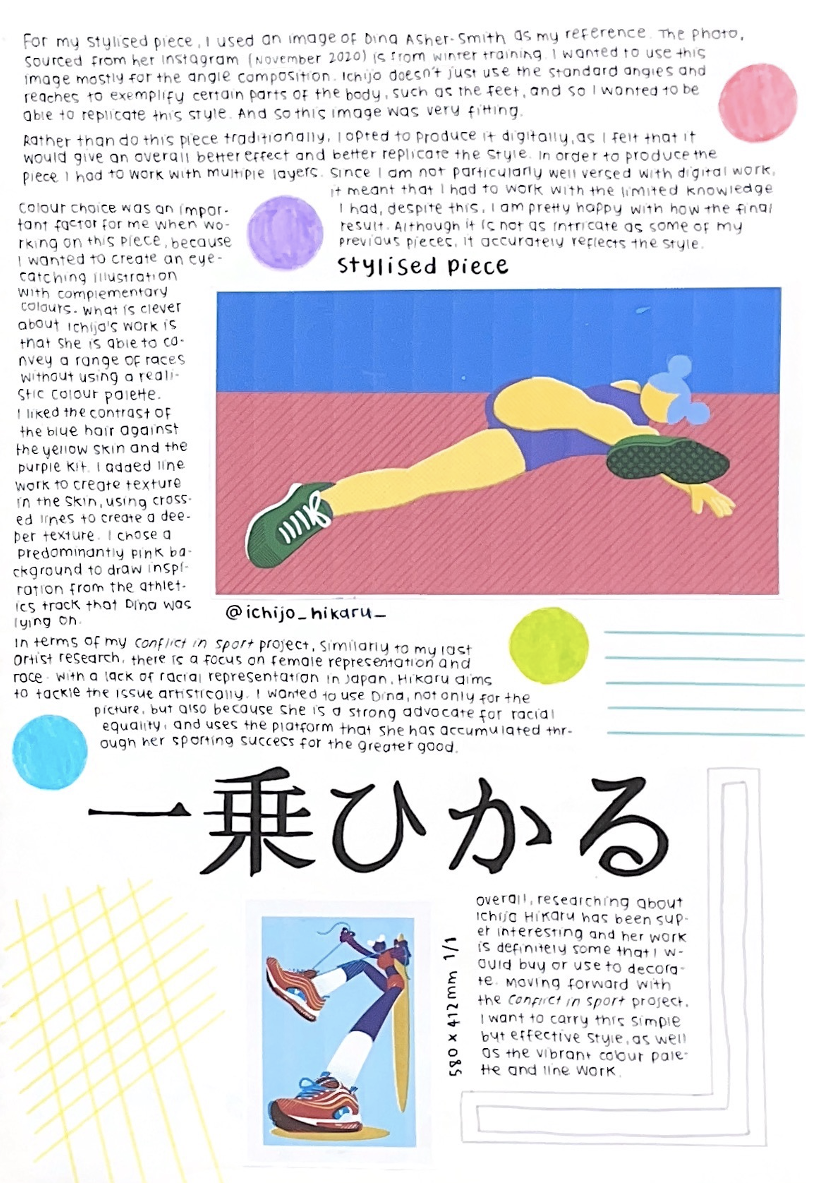 For my stylised piece, I used an image of Dina Asher-Smith as my reference. The photo,
sourced from her Instagram (November 2020) is from winter training. I wanted to use this
image mostly for the angle composition. Ichijo doesn't just use the standard angles and
reaches to exemplify certain parts of the body, such as the feet, and so I wanted to be
able to replicate this style. And so this image was very fitting.
Rather than do this piece traditionally, I opted to produce it digitally, as I felt that it
would give an overall better effect and better replicate the style. In order to produce the
piece I had to work with multiple layers. Since I am not particularly well versed with digital work,
it meant that I had to work with the limited knowledge
I had, despite this, I am pretty happy with how the final
result. Although it is not as intricate as some of my
previous pieces, it accurately reflects the style.
Colour choice was an impor-
tant factor for me when wo-
rking on this piece, because
I wanted to create an eye-
catching illustration
with complementary
colours. What is clever
about Ichijo's work is
that she is able to co-
nvey a range of races
without using a reali-
stic colour palette.
I liked the contrast of
the blue hair against
the yellow skin and the
purple kit. I added line
work to create texture
in the skin, using cross-
ed lines to create a dee-
per texture. I chose a
predominantly pink ba-
ckground to draw inspi-
ration from the athlet-
ics track that Dina was
lying on.
stylised piece
@ichijo_hikaru_
In terms of my conflict in sport project, similarly to my last
artist research, there is a focus on female representation and
race - with a lack of racial representation in Japan, Hikaru aims
to tackle the issue artistically. I wanted to use Dina, not only for the
picture, but also because she is a strong advocate for racial
equality, and uses the platform that she has accumulated thr-
ough her sporting success for the greater good.
一乗ひかる
580 x 412mm 1/1
overall, researching about
Ichijo Hikaru has been sup-
er interesting and her work
is definitely some that I w-
ould buy or use to decora-
te. Moving forward with
the conflict in sport project,
I want to carry this simple
but effective style, as well
as the vibrant colour pale-
tte and line work.